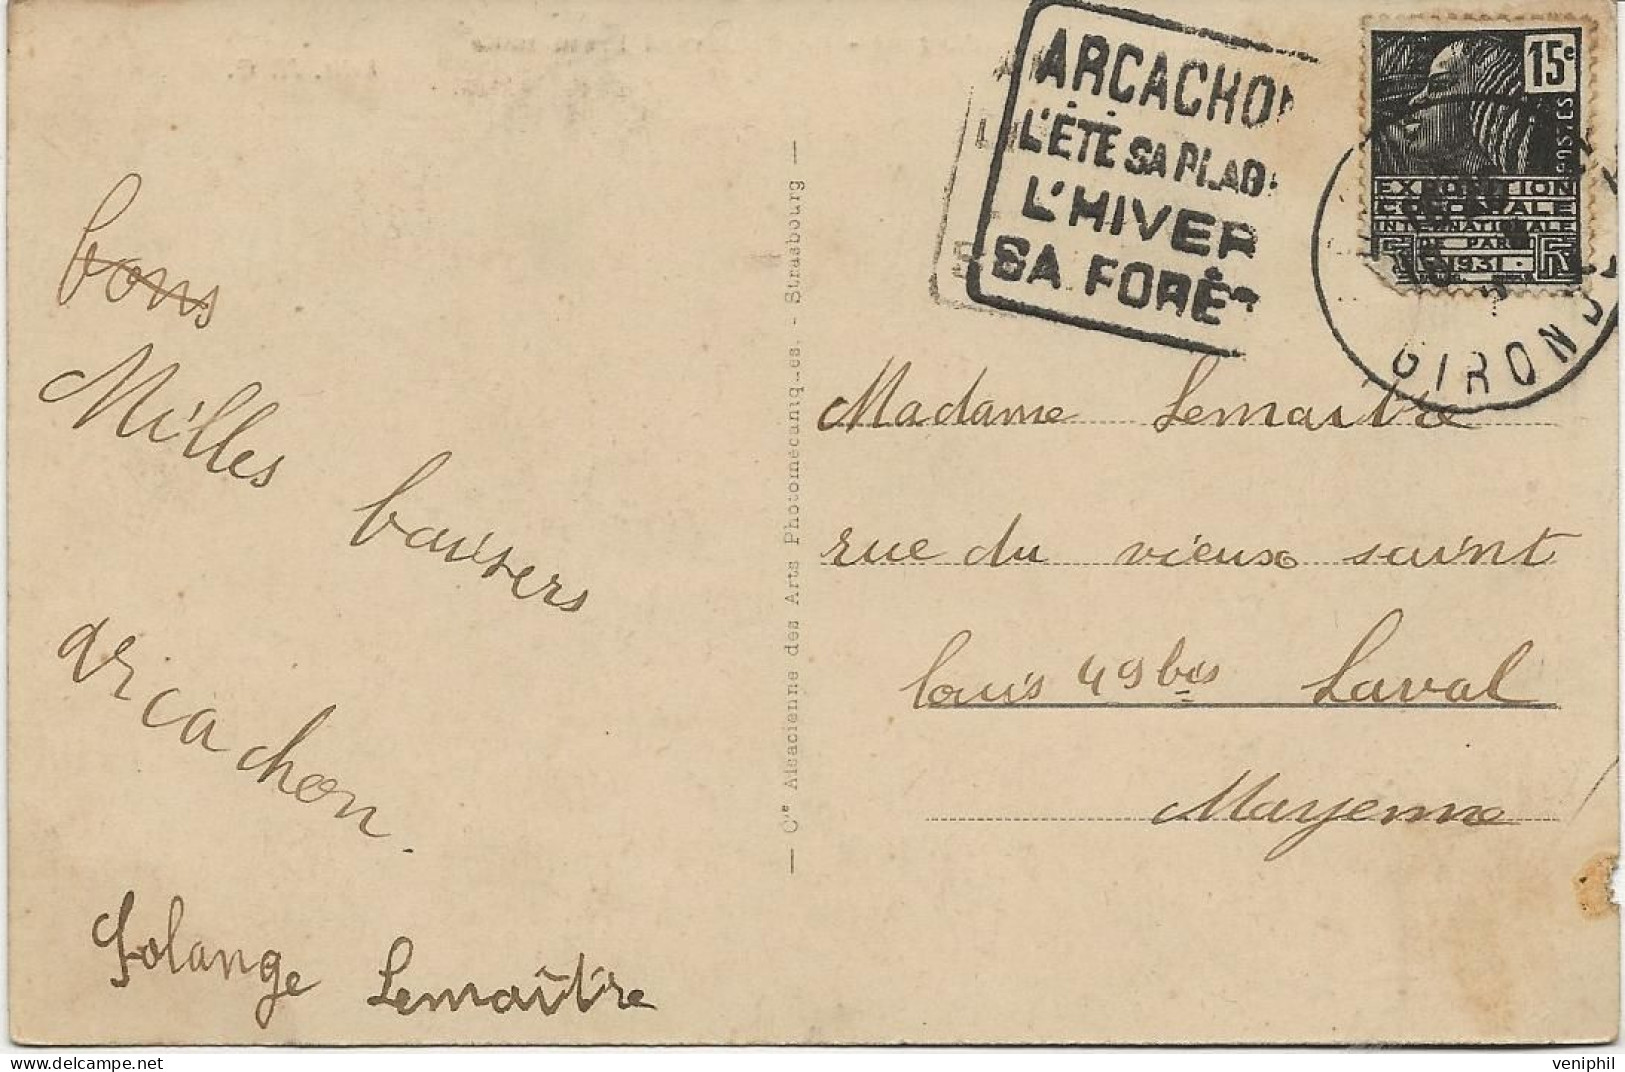 ARCACHON
L'ÉTÉ SA PLAG
L'HIVER
SA FORÊT
15c
POSTES
EXPOSITION
COLONIALE
INTERNATIONALE
DE PARIS
1931
GIROND
bons
Milles baisers
arcachon.
Solange Lemaître
— Cie Alsacienne des Arts Photomécaniques. - Strasbourg —
Madame Lemaitre
rue du vieux saint
louis 49 bis Laval
Mayenne
veniphil